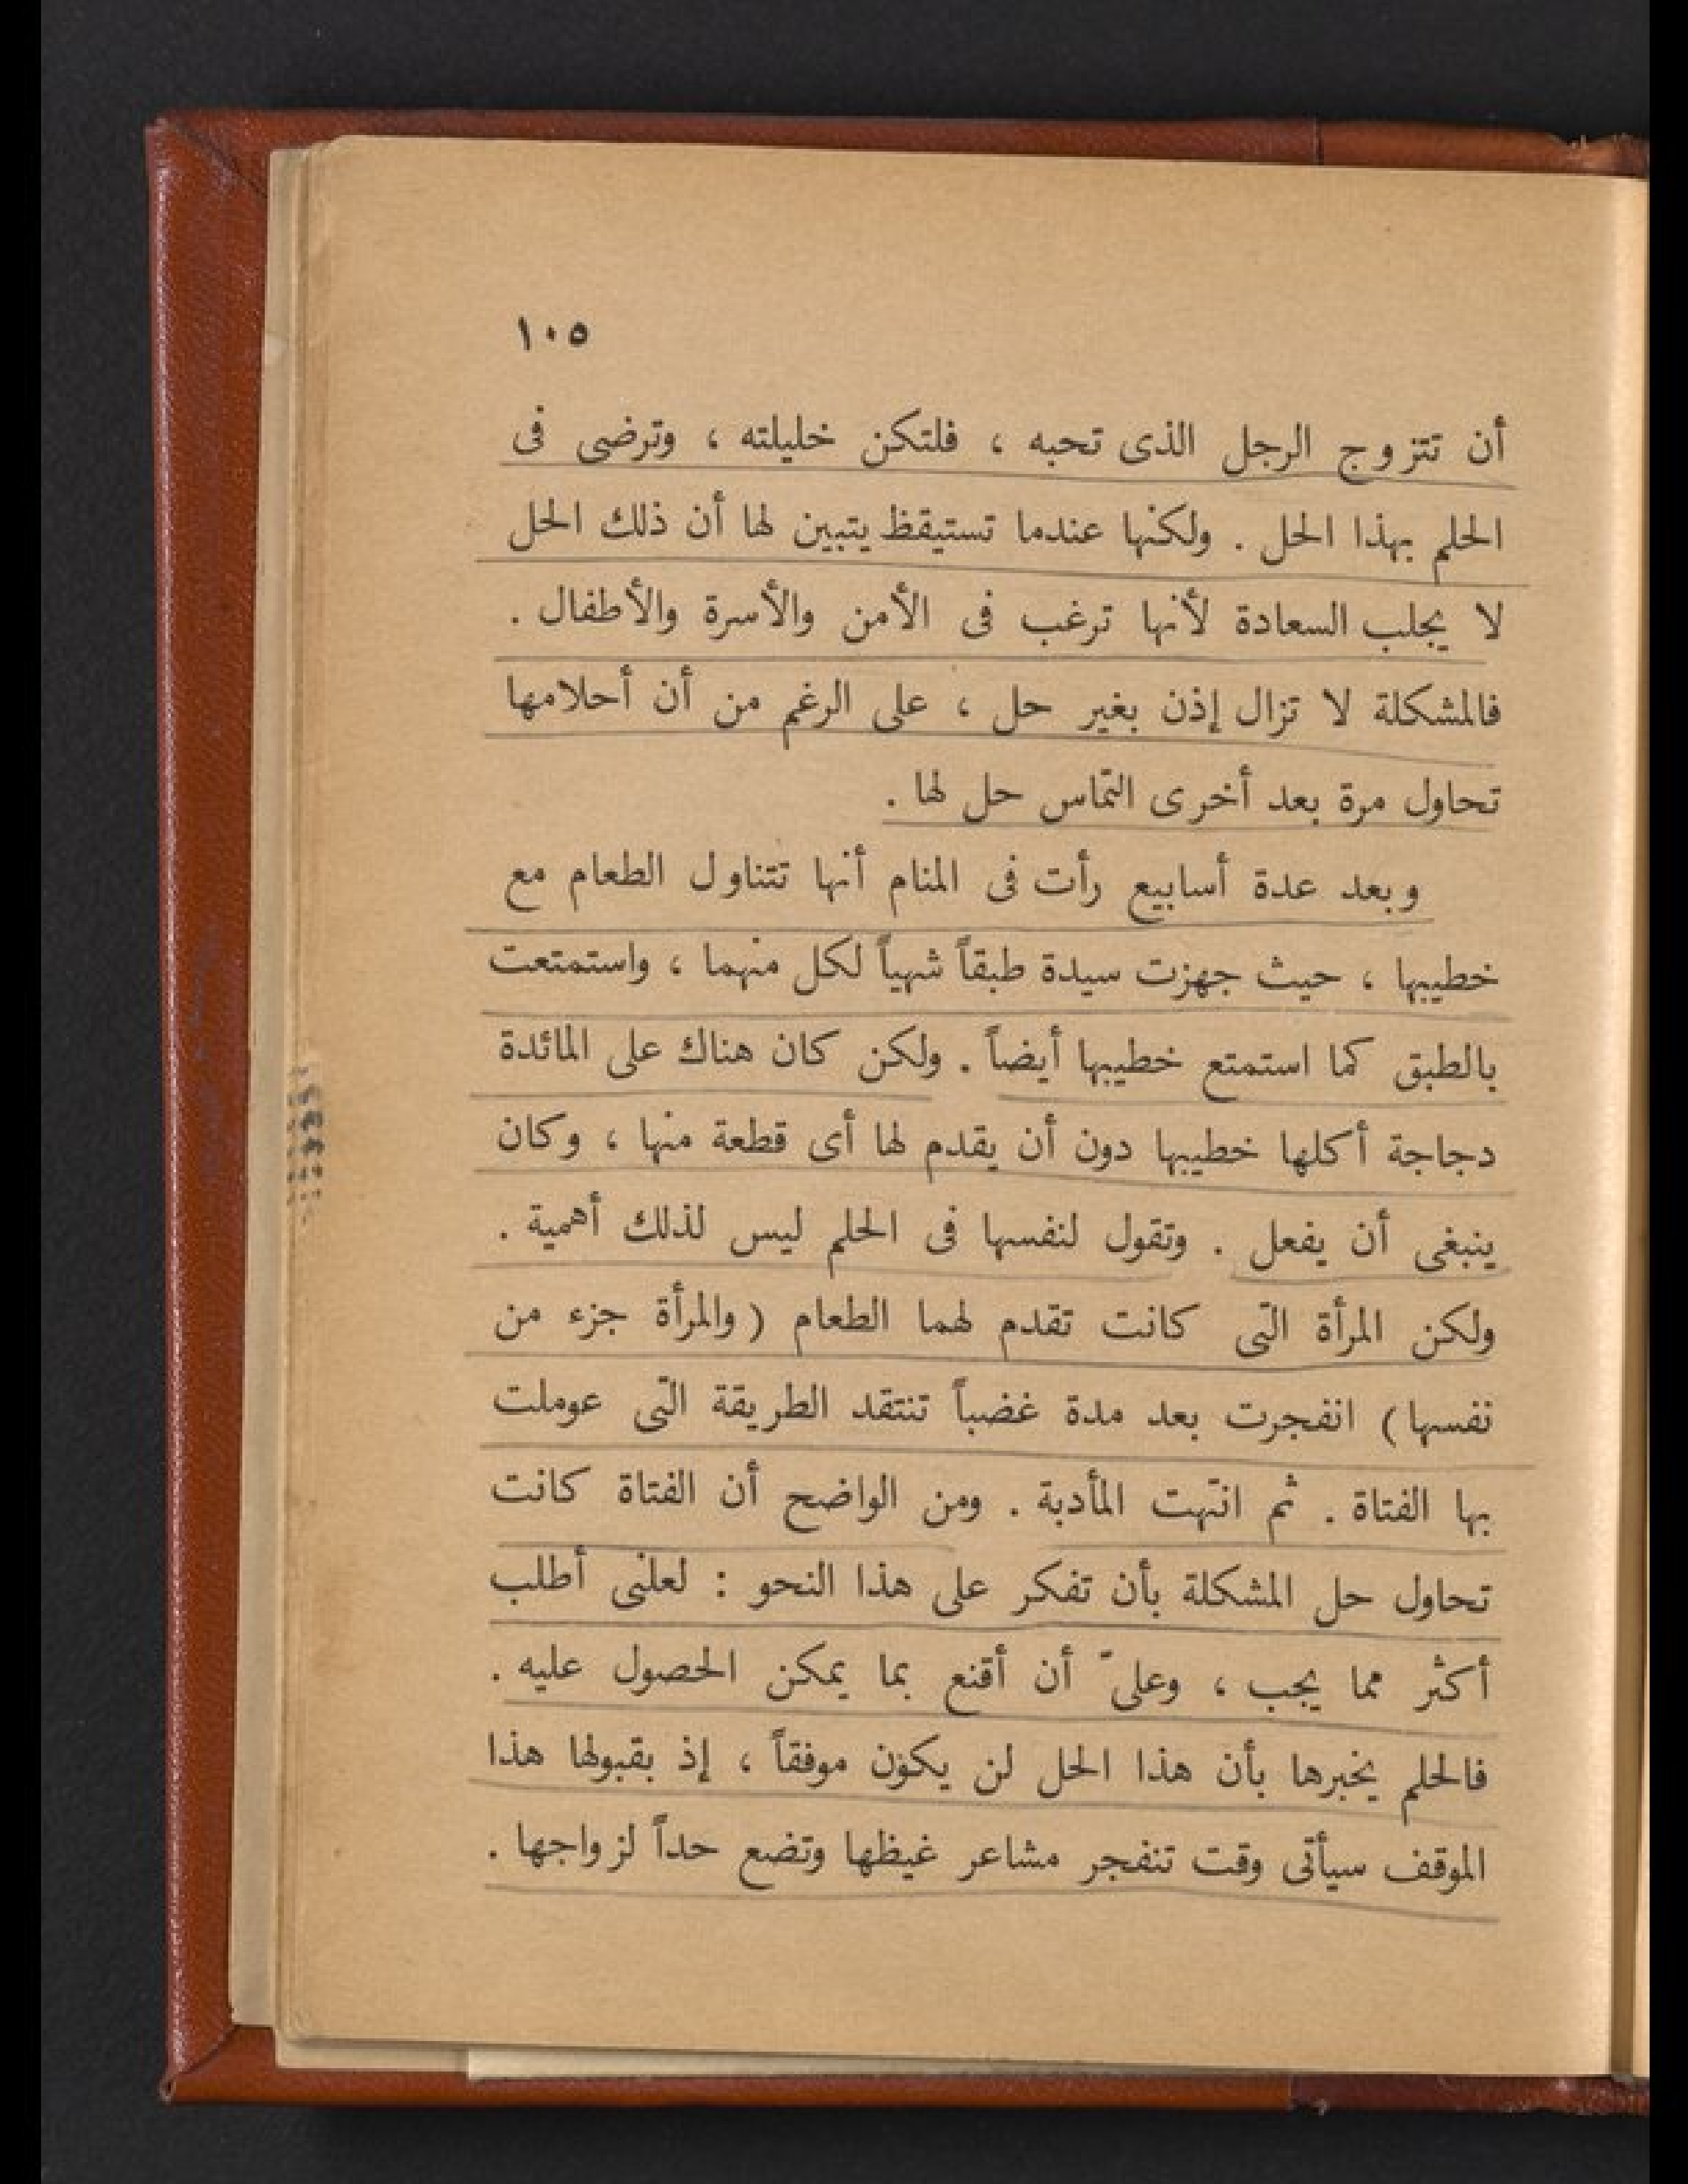 ١٠٥
أن تتزوج الرجل الذى تحبه ، فلتكن خليلته ، وترضى فى
الحلم بهذا الحل . ولكنها عندما تستيقظ يتبين لها أن ذلك الحل
لا يجلب السعادة لأنها ترغب فى الأمن والأسرة والأطفال .
فالمشكلة لا تزال إذن بغير حل ، على الرغم من أن أحلامها
تحاول مرة بعد أخرى التماس حل لها .
وبعد عدة أسابيع رأت فى المنام أنها تتناول الطعام مع
خطيبها ، حيث جهزت سيدة طبقاً شهياً لكل منهما ، واستمتعت
بالطبق كما استمتع خطيبها أيضاً . ولكن كان هناك على المائدة
دجاجة أكلها خطيبها دون أن يقدم لها أى قطعة منها ، وكان
ينبغى أن يفعل . وتقول لنفسها فى الحلم ليس لذلك أهمية .
ولكن المرأة التى كانت تقدم لهما الطعام ( والمرأة جزء من
نفسها ) انفجرت بعد مدة غضباً تنتقد الطريقة التى عوملت
بها الفتاة . ثم انتهت المأدبة . ومن الواضح أن الفتاة كانت
تحاول حل المشكلة بأن تفكر على هذا النحو : لعلنى أطلب
أكثر مما يجب ، وعلىّ أن أقنع بما يمكن الحصول عليه .
فالحلم يخبرها بأن هذا الحل لن يكون موفقاً ، إذ بقبولها هذا
الموقف سيأتى وقت تنفجر مشاعر غيظها وتضع حداً لزواجها .